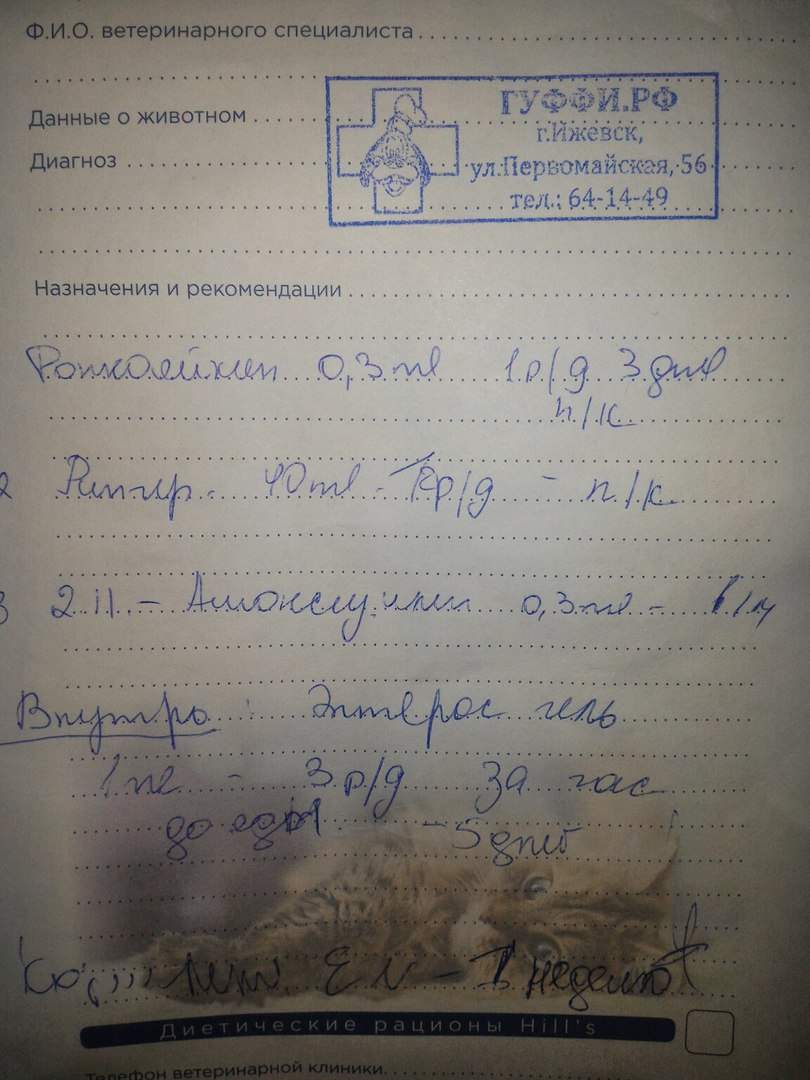 Ф.И.О. ветеринарного специалиста
ГУФФИ.РФ
г.Ижевск,
ул.Первомайская, 56
тел.: 64-14-49
Данные о животном
Диагноз
Назначения и рекомендации
Ронколейкин 0,3 мл 1 р/д 3 дня
п/к
2 Рингер - 40 мл - р/д - п/к
3 2.11 - 0,3 мл - в/м
Внутрь: Энтерос гель
1 мл - 3 р/д за час
до еды - 5 дней
EN - 1 неделю
Диетические рационы Hill's
Телефон ветеринарной клиники